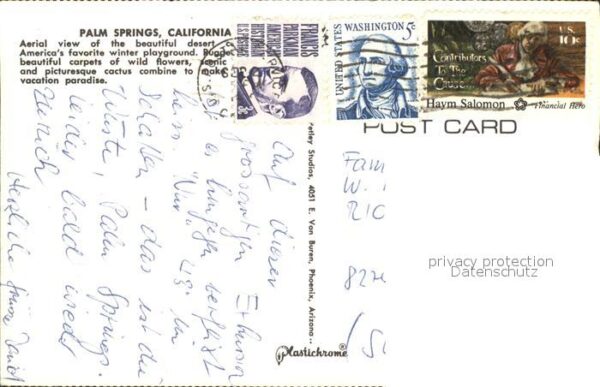 PALM SPRINGS, CALIFORNIA
Aerial view of the beautiful desert
America's favorite winter playground. Rugged
beautiful carpets of wild flowers, scenic
and picturesque cactus combine to make
vacation paradise.
FRANCIS
PARKMAN
AMERICAN
HISTORIAN
U.S. POSTAGE
3c
WASHINGTON
5c
UNITED STATES
Contributors
To The
Cause...
U.S.
10c
Haym Salomon
Financial Hero
POST CARD
Auf dieser
grossartigen Exkursion
ist es
heiss "Nur" 45° im
Schatten - das ist die
Wüste, Palm Springs.
leider bald wieder
zurück
Herzliche Grüsse
Petley Studios, 4051 E. Van Buren, Phoenix, Arizona
Plastichrome®
Fam
W.
RIC
827
(S
privacy protection
Datenschutz